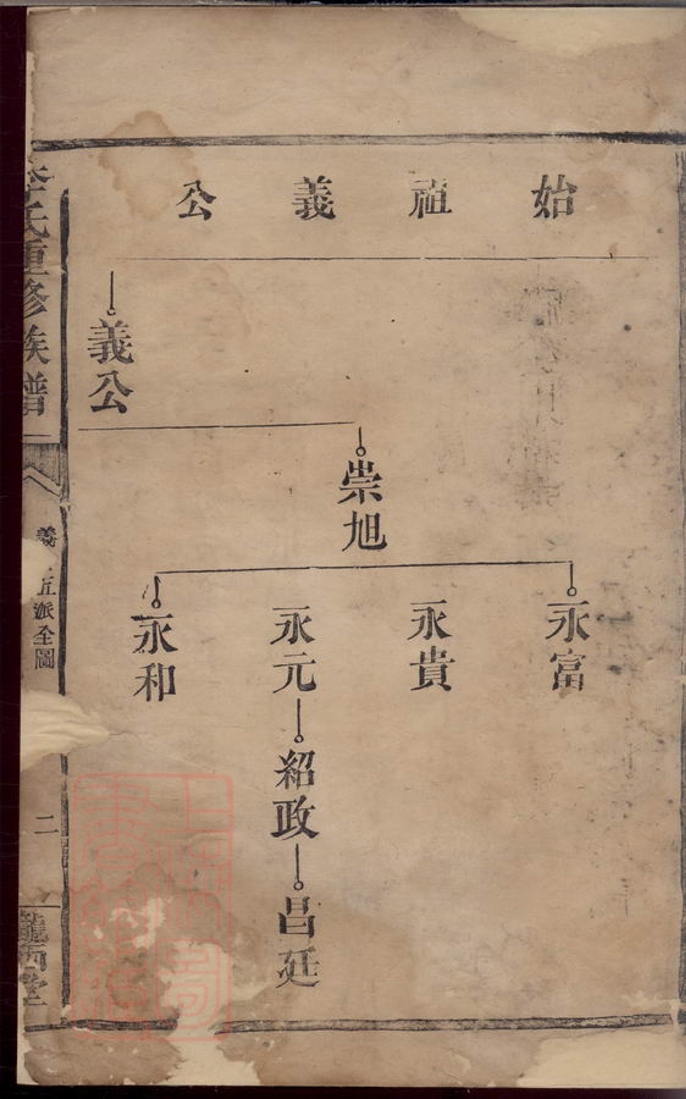 始祖義公
義公
崇旭
永富
永貴
永元
永和
紹政
昌廷
李氏重修族譜
義 五派全圖
二
隴西堂